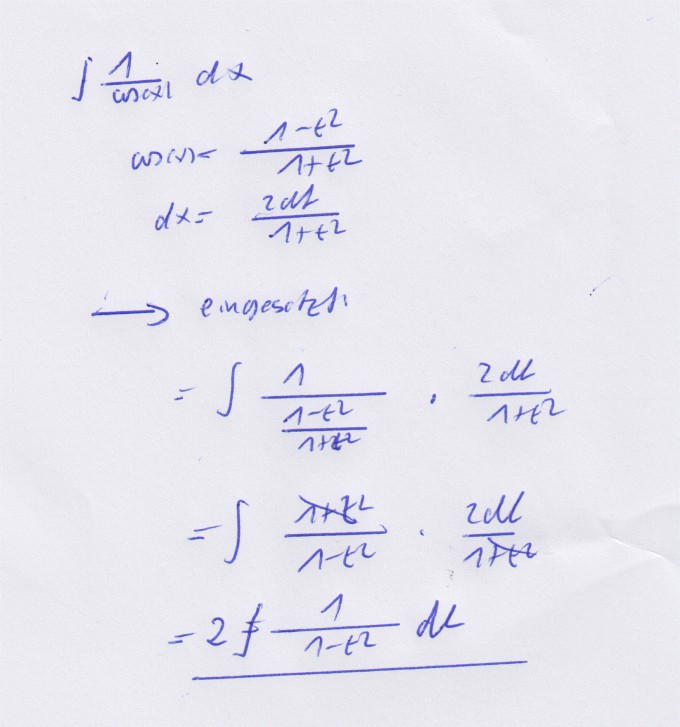 ∫ 1/cos(x) dx
cos(x) = (1-t²)/(1+t²)
dx = 2dt/(1+t²)
→ eingesetzt:
= ∫ 1/((1-t²)/(1+t²)) · 2dt/(1+t²)
= ∫ (1+t²)/(1-t²) · 2dt/(1+t²)
= 2 ∫ 1/(1-t²) dt